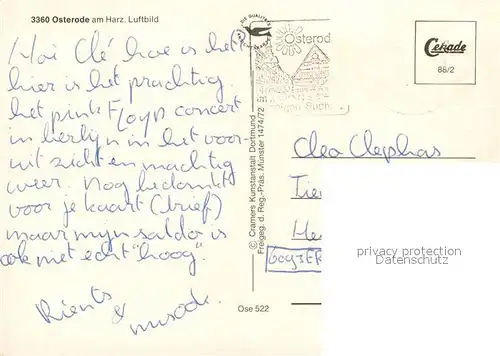 3360 Osterode am Harz. Luftbild
Hoi Clé hoe is het?
hier is het prachtig
het pink Floyd concert
in berlijn in het voor
uit zicht en machtig
weer. nog bedankt
voor je kaart (brief)
maar mijn saldo is
ook niet echt "hoog".
Rients
&
DIE QUALITÄT
Osterod
Cekade
88/2
© Cramers Kunstanstalt Dortmund
Freigeg. d. Reg.-Präs. Münster 1474/72
Cleo Clephas
privacy protection
Datenschutz
Ose 522